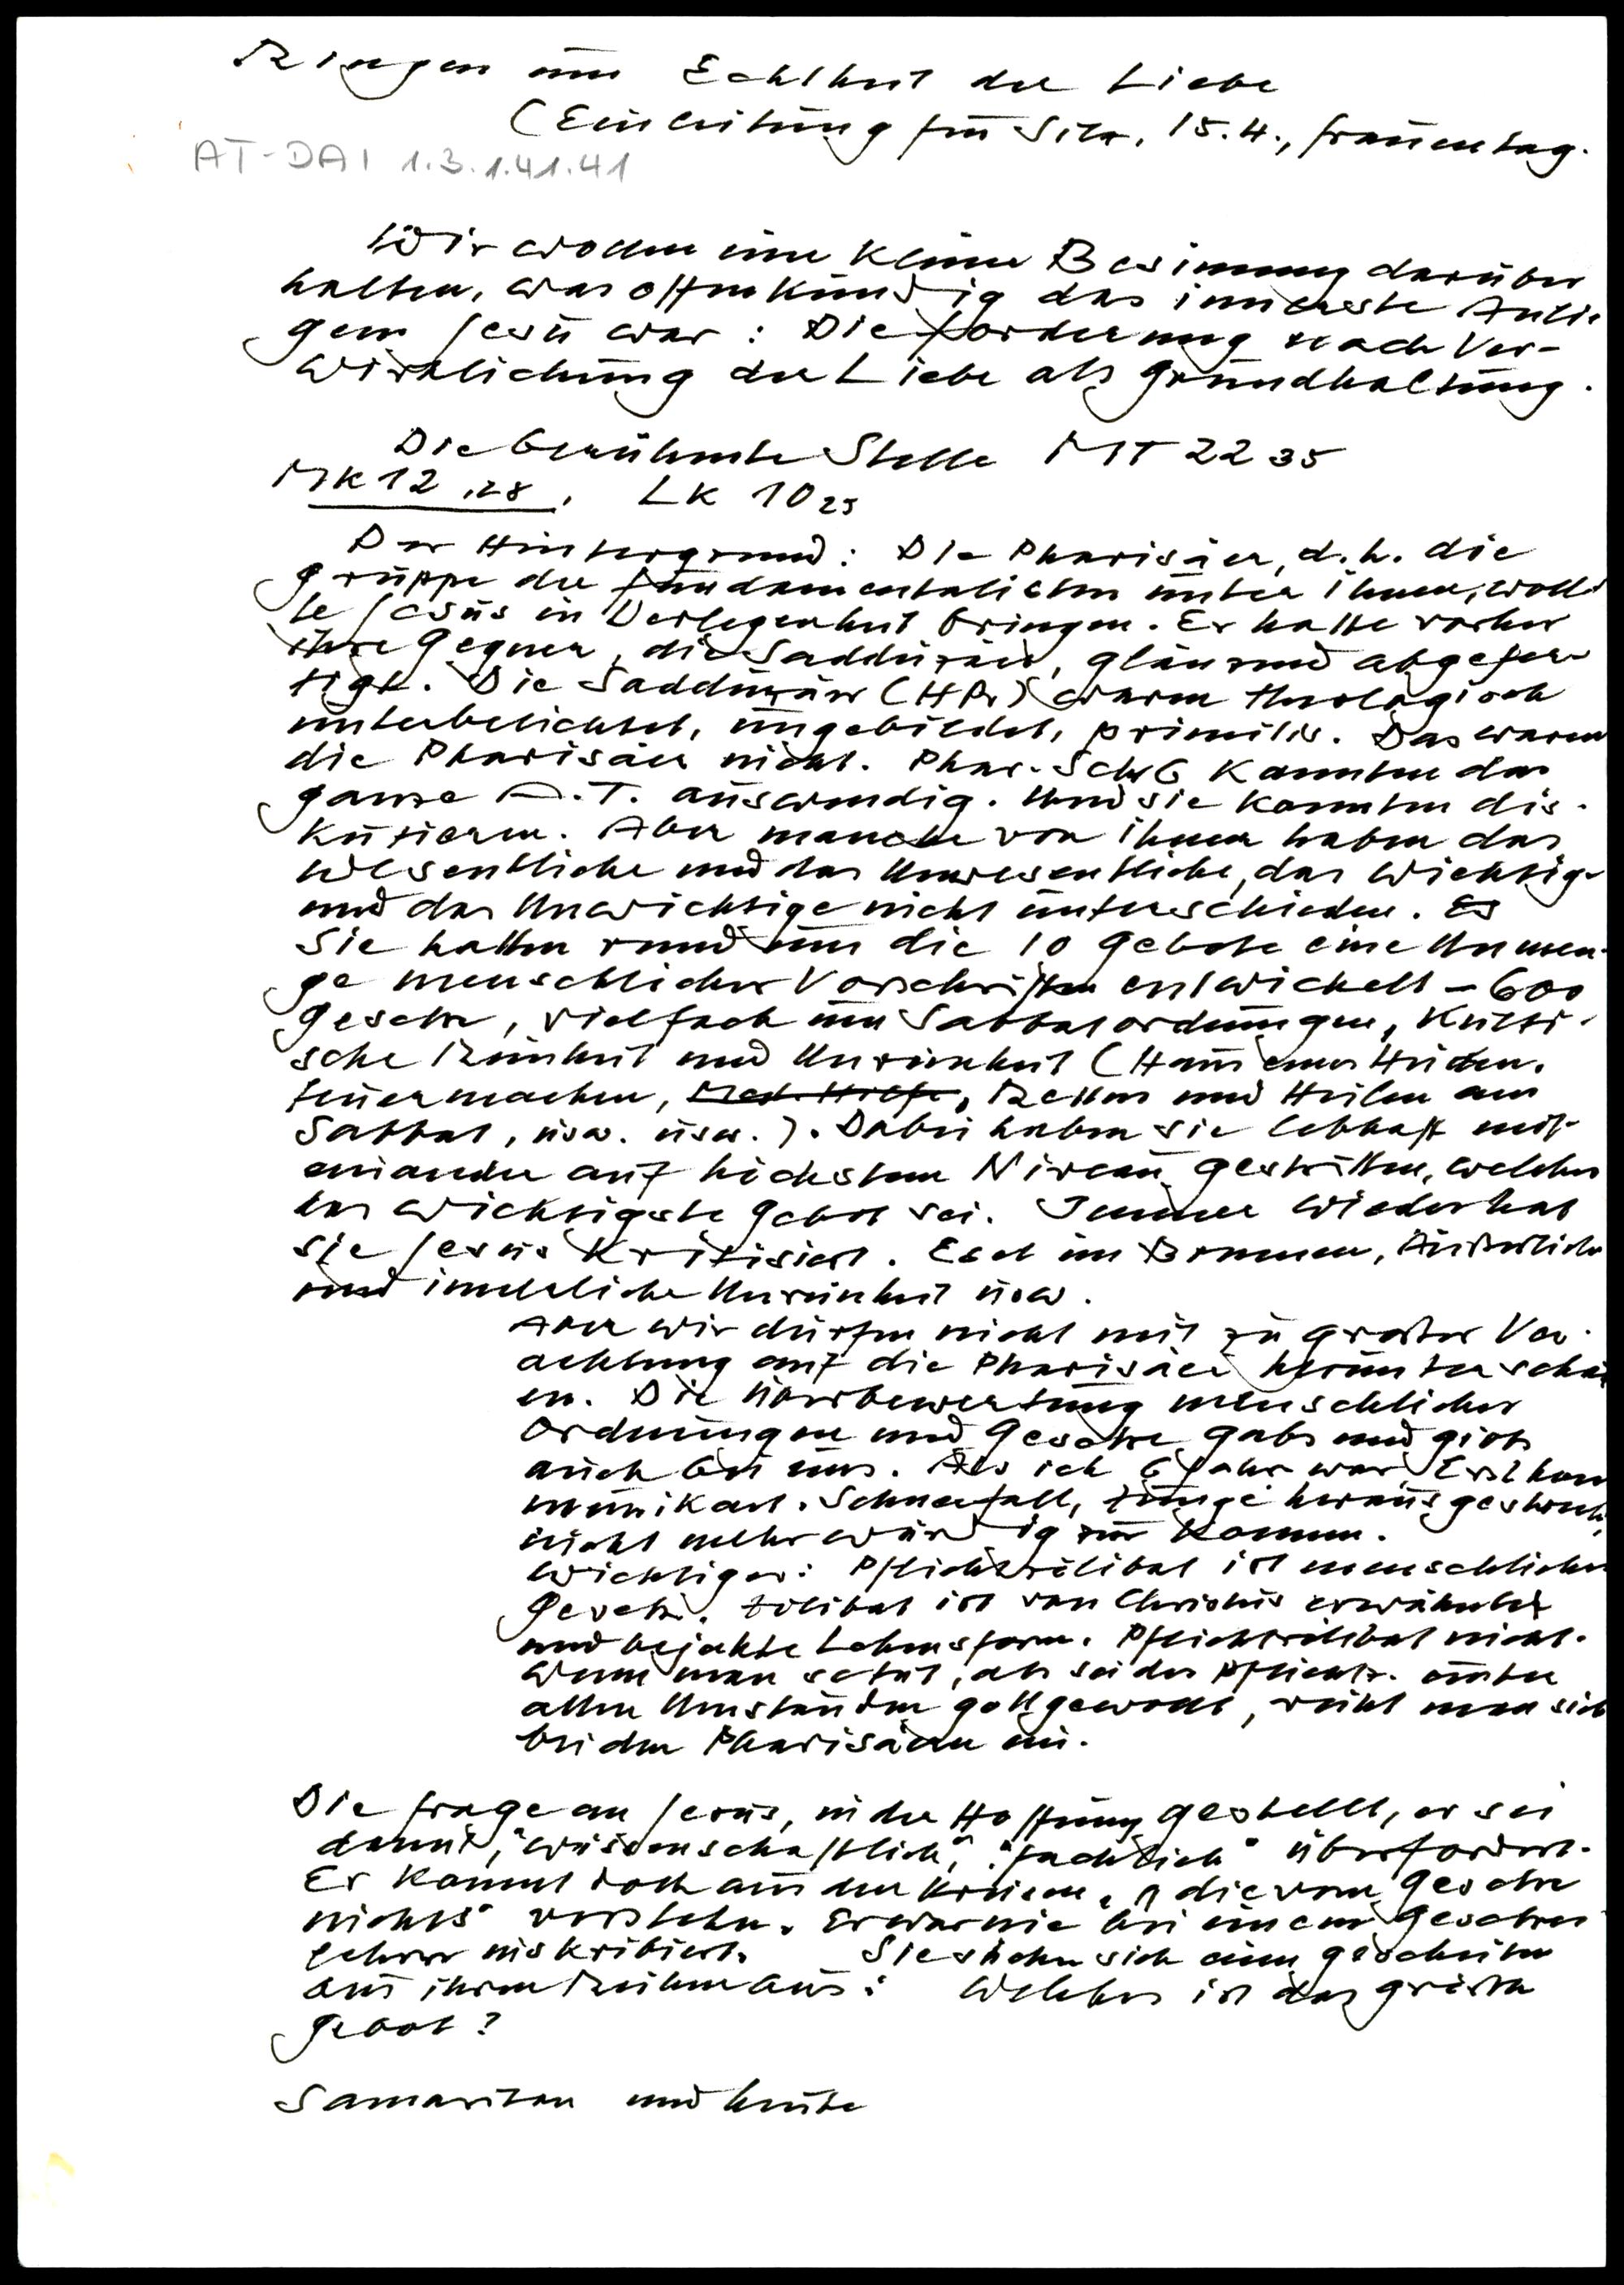 Ringen um Echtheit der Liebe
(Einleitung für Silz, 15.4., Frauentag.
AT-DAI 1.3.1.41.41
Wir wollen eine kleine Besinnung darüber
halten, was offenkündig das innerste Anlie
gen Jesu war: Die Forderung nach Ver-
wirklichung der Liebe als Grundhaltung.
Die berühmte Stelle MT 22 35
Mk 12,28, LK 10 25
Der Hintergrund: Die Pharisäer, d.h. die
Gruppe der Fundamentalisten unter ihnen, woll
te Jesus in Verlegenheit bringen. Er hatte vorher
ihre Gegner, die Sadduzäer, glänzend abgefer
tigt. Die Sadduzäer (HPr) waren theologisch
unterbelichtet, ungebildet, primitiv. Das waren
die Pharisäer nicht. Phar. Schr G kannten das
ganze A.T. auswendig. Und sie konnten dis-
kutieren. Aber manche von ihnen haben das
Wesentliche und das Unwesentliche, das Wichtige
und das Unwichtige nicht unterschieden. Es
Sie hatten rund um die 10 Gebote eine Unmen-
ge menschlicher Vorschriften entwickelt - 600
Gesetze, vielfach um Sabbatordnungen, kulti-
sche Reinheit und Unreinheit (Haus eines Heiden,
Feuermachen, Med. Hilfe, Retten und Heilen am
Sabbat, usw. usw.). Dabei haben sie lebhaft mit-
einander auf höchstem Niveau gestritten, welches
das wichtigste Gebot sei. Immer wieder hat
sie Jesus kritisiert. Esel im Brunnen, Äußerliche
und innerliche Unreinheit usw.
Aber wir dürfen nicht mit zu großer Ver-
achtung auf die Pharisäer herunterschau
en. Die Überbewertung menschlicher
Ordnungen und Gesetze gabs und gibts
auch bei uns. Als ich 6 Jahr war, Erstkom
munikant. Schneefall, Zunge herausgestreckt,
nicht mehr würdig zur Kommun.
Wichtiger: Pflichtzölibat ist menschliches
Gesetz. Zölibat ist von Christus erwähnte
und bejahte Lebensform. Pflichtzölibat nicht.
Wenn man so tut, als sei der Pflichtz. unter
allen Umständen gottgewollt, reiht man sich
bei den Pharisäern ein.
Die Frage an Jesus, in der Hoffnung gestellt, er sei
damit, "wissenschaftlich", "fachlich" überfordert.
Er kommt doch aus den Kreisen, "die vom Gesetze
nichts" verstehn. Er war nie bei einem Gesetzes
lehrer inskribiert. Sie suchen sich einen gescheiten
aus ihren Reihen aus: Welches ist das größte
Gebot?
Samaritan und heute